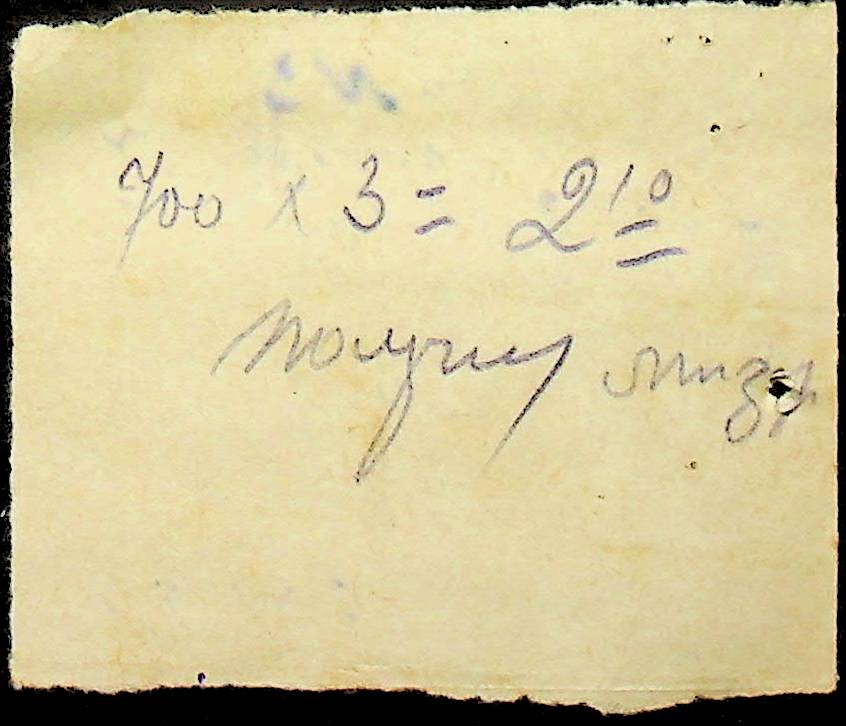 700 x 3 = 2 10
Получил